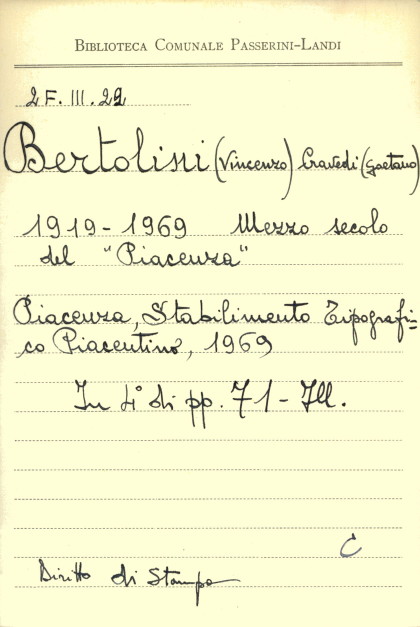 BIBLIOTECA COMUNALE PASSERINI-LANDI
2 F. III. 22
Bertolini (Vincenzo) Cravedi (Gaetano)
1919-1969 Mezzo secolo
del "Piacenza"
Piacenza, Stabilimento Tipografi=
co Piacentino, 1969
In 4° di pp. 71 - Ill.
C
Diritto di Stampa